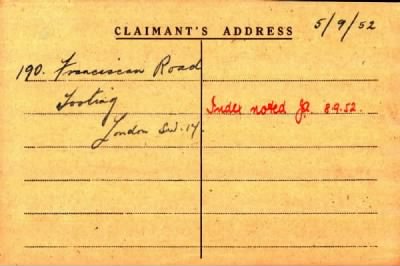 CLAIMANT'S ADDRESS
5/9/52
190. Franciscan Road
Tooting
London S.W.17.
Index noted JP. 8.9.52.